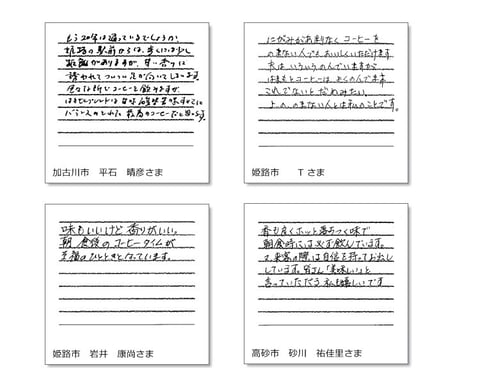 もう20年は通っているでしょうか
姫路の駅前からは、歩くには少し
距離がありますが、甘い香りに
誘われてついつい足が向いてしまいます
色々な所でコーヒーを飲みますが
はまもとブレンドは甘味酸味苦味すべてに
バランスがとれた、最高のコーヒーだと思います。
加古川市 平石 晴彦さま
にがみがあまりなく コーヒーを
のまない人でも、おいしくいただけます
夫は、いろいろのんでいますから
はまもとコーヒーは、よくのんでます。
これでないと だめみたい。
上の、のまない人とは私のことです。
姫路市 Tさま
味もいいけど 香りがいい。
朝食後のコーヒータイムが
至福のひとときとなっています。
姫路市 岩井 康尚さま
香も良くホット落ちつく味で
朝食時には必ず飲んでいます。
又、来客の際は自信を持っておだし
しています。皆さん「美味しい」と
言っていただき 私も嬉しいです
高砂市 砂川 祐佳里さま